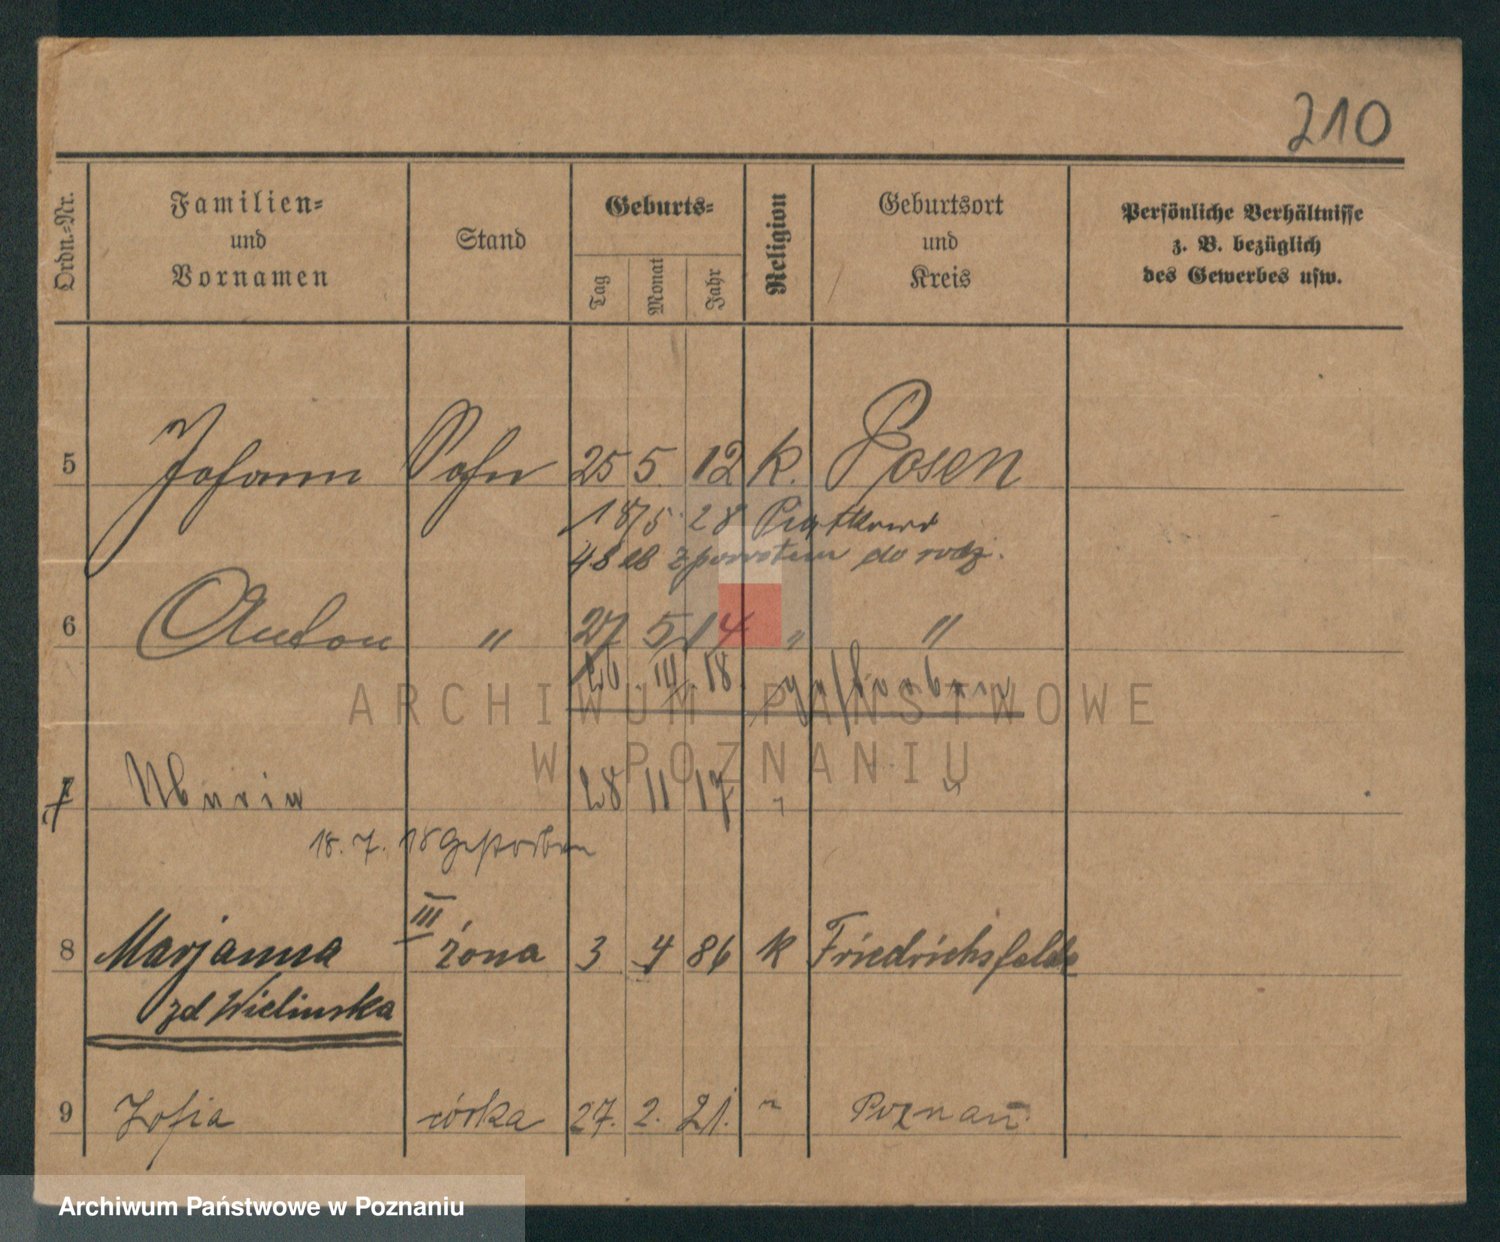 210
Ordn.-Nr.
Familien-
und
Vornamen
Stand
Geburts-
Tag
Monat
Jahr
Religion
Geburtsort
und
Kreis
Persönliche Verhältnisse
z. B. bezüglich
des Gewerbes usw.
5 Johann Sohn 25 5. 12 k. Posen
18/5 28 Piątkowo
z powrotem do rodz.
6 Anton " 27 5. 14 " "
26. III. 18. gestorben
7 Maria 28 11 17 " "
18. 7. 18 Gestorben
8 Marjanna III żona 3 4 86 k Friedrichsfelde
zd Wielinska
9 Zofia córka 27. 2. 21. " Poznań
ARCHIWUM PAŃSTWOWE
W POZNANIU
Archiwum Państwowe w Poznaniu